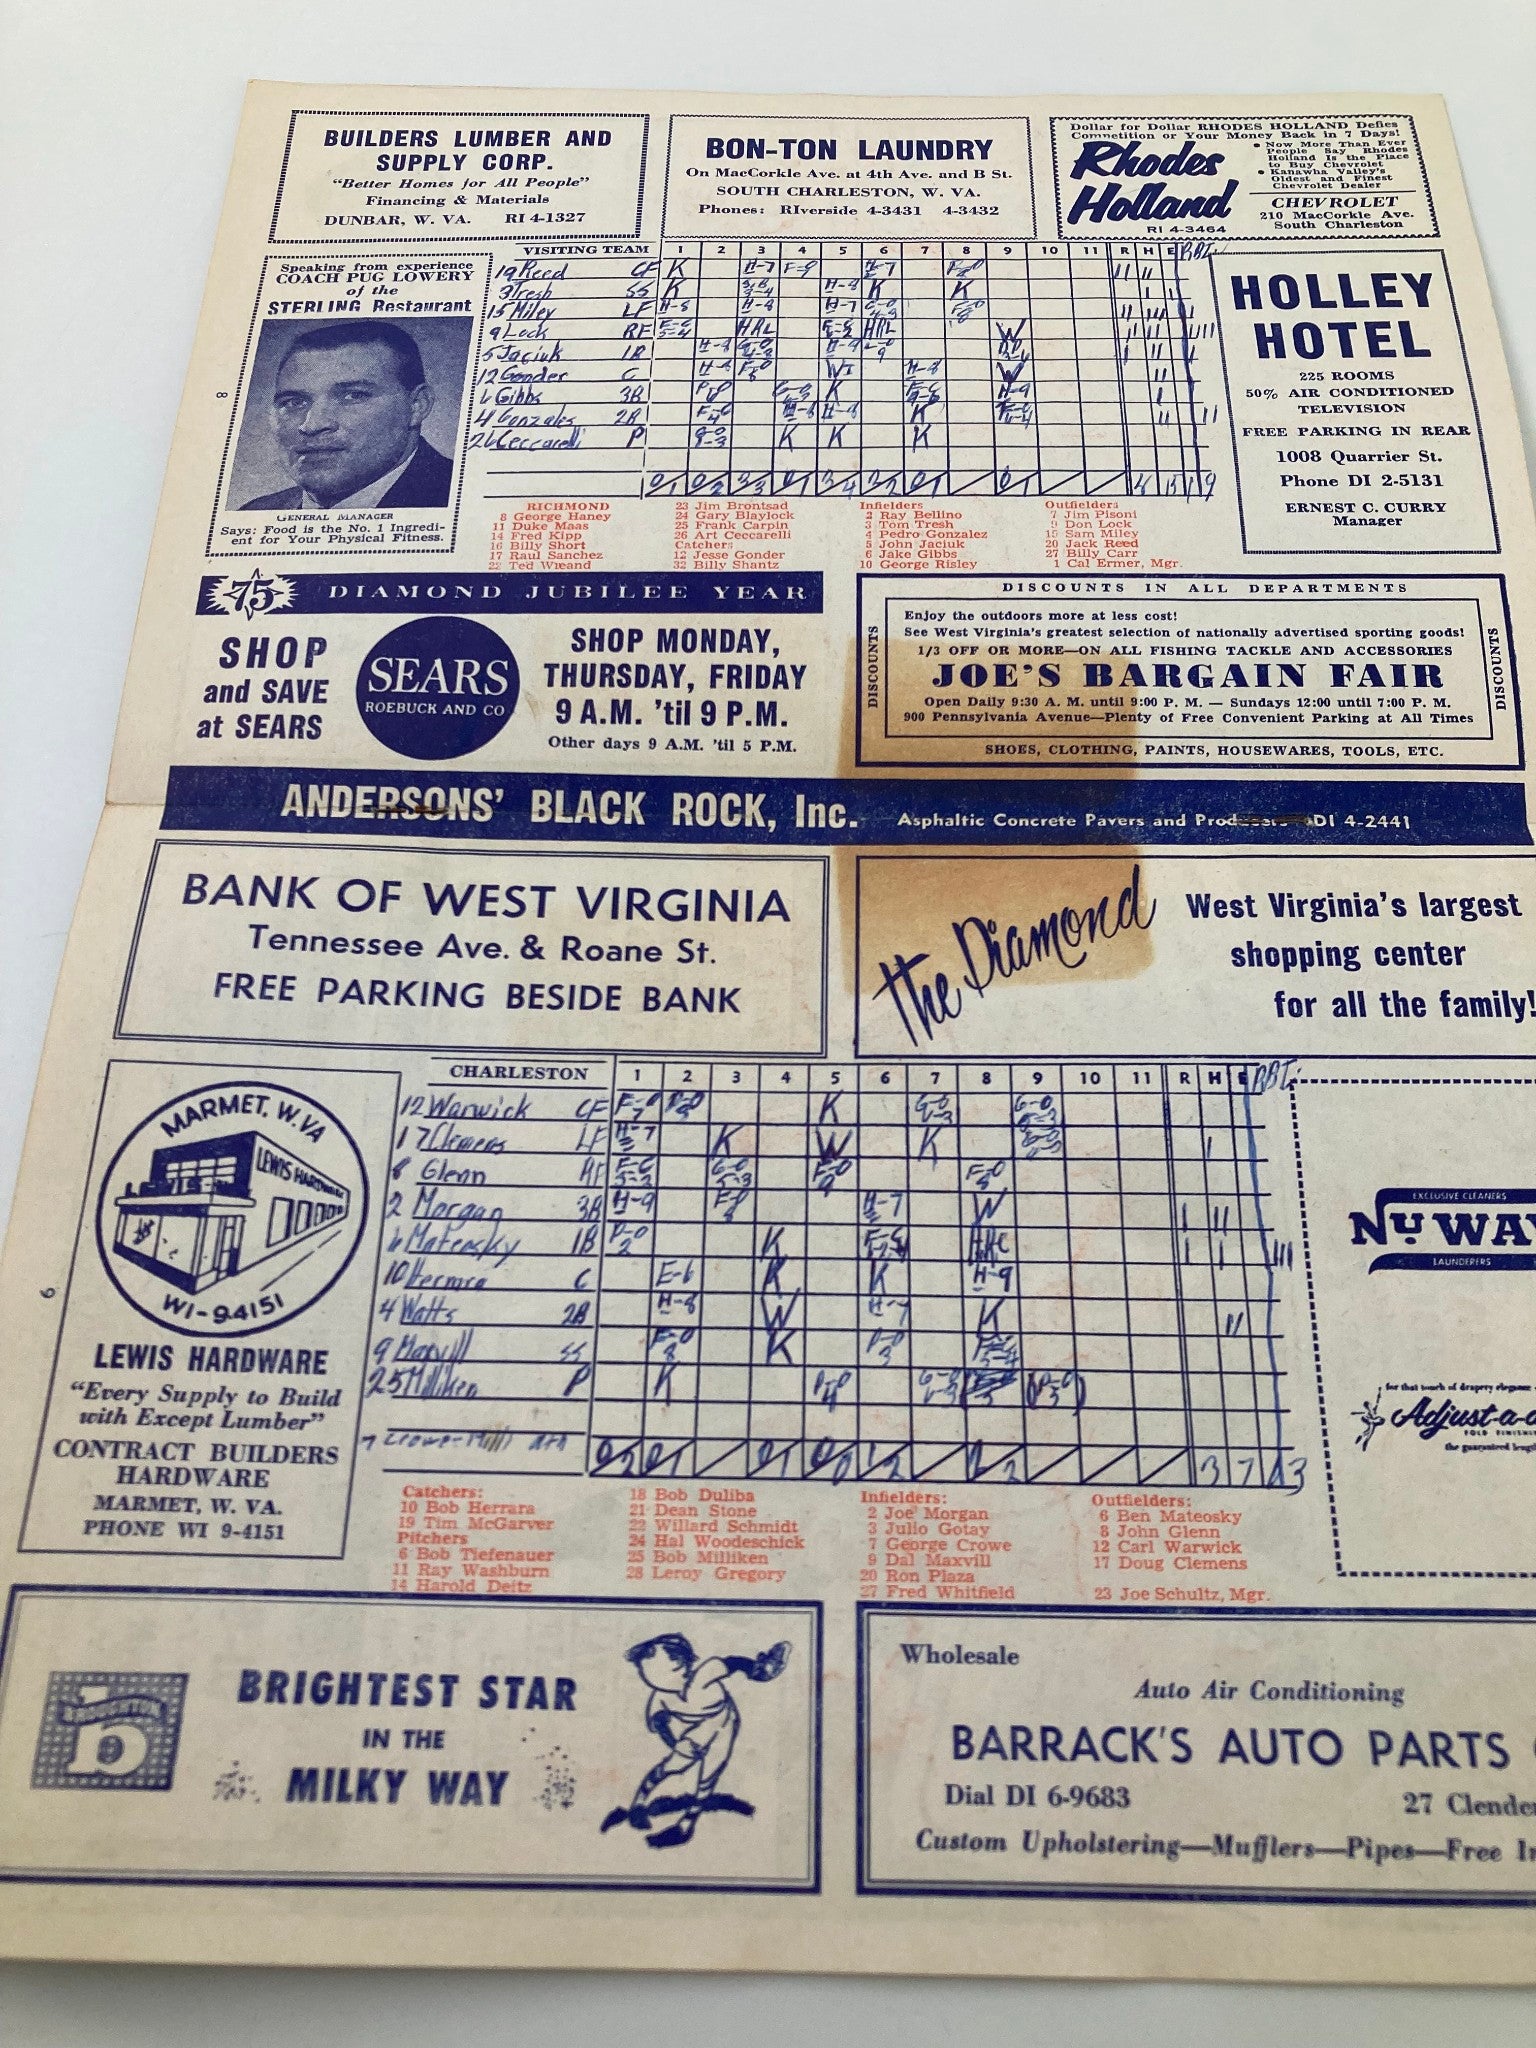 BUILDERS LUMBER AND
SUPPLY CORP.
"Better Homes for All People"
Financing & Materials
DUNBAR, W. VA. RI 4-1327
BON-TON LAUNDRY
On MacCorkle Ave. at 4th Ave. and B St.
SOUTH CHARLESTON, W. VA.
Phones: RIverside 4-3431 4-3432
Dollar for Dollar RHODES HOLLAND Defies
Competition or Your Money Back in 7 Days!
Rhodes
Holland
• Now More Than Ever
People Say Rhodes
Holland Is the Place
to Buy Chevrolet
• Kanawha Valley's
Oldest and Finest
Chevrolet Dealer
CHEVROLET
210 MacCorkle Ave.
South Charleston
RI 4-3464
Speaking from experience
COACH PUG LOWERY
of the
STERLING Restaurant
GENERAL MANAGER
Says: Food is the No. 1 Ingredi-
ent for Your Physical Fitness.
8
VISITING TEAM 1 2 3 4 5 6 7 8 9 10 11 R H E RBI
19 Reed CF K H-7
3 Tresh SS K H-8 K K
15 Miley LF H-5 H-8 H-7
9 Lock RF HRL HRL W
5 Jaciuk 1B H-8 H-9
12 Gonder C H-8 H-8 W
6 Gibbs 3B K H-9
4 Gonzales 2B H-8 H-8 K
26 Ceccarelli P K K K
HOLLEY
HOTEL
225 ROOMS
50% AIR CONDITIONED
TELEVISION
FREE PARKING IN REAR
1008 Quarrier St.
Phone DI 2-5131
ERNEST C. CURRY
Manager
RICHMOND
8 George Haney
11 Duke Maas
14 Fred Kipp
16 Billy Short
17 Raul Sanchez
22 Ted Wieand
23 Jim Brontsad
24 Gary Blaylock
25 Frank Carpin
26 Art Ceccarelli
Catchers:
12 Jesse Gonder
32 Billy Shantz
Infielders
2 Ray Bellino
3 Tom Tresh
4 Pedro Gonzalez
5 John Jaciuk
6 Jake Gibbs
10 George Risley
Outfielders:
7 Jim Pisoni
9 Don Lock
15 Sam Miley
20 Jack Reed
27 Billy Carr
1 Cal Ermer, Mgr.
75 DIAMOND JUBILEE YEAR
SHOP
and SAVE
at SEARS
SEARS
ROEBUCK AND CO
SHOP MONDAY,
THURSDAY, FRIDAY
9 A.M. 'til 9 P.M.
Other days 9 A.M. 'til 5 P.M.
DISCOUNTS IN ALL DEPARTMENTS
DISCOUNTS
Enjoy the outdoors more at less cost!
See West Virginia's greatest selection of nationally advertised sporting goods!
1/3 OFF OR MORE—ON ALL FISHING TACKLE AND ACCESSORIES
JOE'S BARGAIN FAIR
Open Daily 9:30 A. M. until 9:00 P. M. — Sundays 12:00 until 7:00 P. M.
900 Pennsylvania Avenue—Plenty of Free Convenient Parking at All Times
SHOES, CLOTHING, PAINTS, HOUSEWARES, TOOLS, ETC.
DISCOUNTS
ANDERSONS' BLACK ROCK, Inc. Asphaltic Concrete Pavers and Producers DI 4-2441
BANK OF WEST VIRGINIA
Tennessee Ave. & Roane St.
FREE PARKING BESIDE BANK
the Diamond
West Virginia's largest
shopping center
for all the family!
MARMET, W. VA
LEWIS HARDWARE
WI-9-4151
LEWIS HARDWARE
"Every Supply to Build
with Except Lumber"
CONTRACT BUILDERS
HARDWARE
MARMET, W. VA.
PHONE WI 9-4151
9
CHARLESTON 1 2 3 4 5 6 7 8 9 10 11 R H E RBI
12 Warwick CF K
17 Clemens LF H-7 K W K
8 Glenn RF
2 Morgan 3B H-9 H-7 W
6 Mateosky 1B K
10 Herrara C E-6 K K H-9
4 Watts 2B H-8 W H-7 K
9 Maxvill SS K
25 Milliken P K
7 Crowe
EXCLUSIVE CLEANERS
NU WAY
LAUNDERERS
for that touch of drapery elegance
Adjust-a-d
FOLD FINISHI
the guaranteed lengt
Catchers:
10 Bob Herrara
19 Tim McGarver
Pitchers
6 Bob Tiefenauer
11 Ray Washburn
14 Harold Deitz
18 Bob Duliba
21 Dean Stone
22 Willard Schmidt
24 Hal Woodeschick
25 Bob Milliken
28 Leroy Gregory
Infielders:
2 Joe Morgan
3 Julio Gotay
7 George Crowe
9 Dal Maxvill
20 Ron Plaza
27 Fred Whitfield
Outfielders:
6 Ben Mateosky
8 John Glenn
12 Carl Warwick
17 Doug Clemens
23 Joe Schultz, Mgr.
BROUGHTON
b
BRIGHTEST STAR
IN THE
MILKY WAY
Wholesale
Auto Air Conditioning
BARRACK'S AUTO PARTS
Dial DI 6-9683 27 Clende
Custom Upholstering—Mufflers—Pipes—Free In